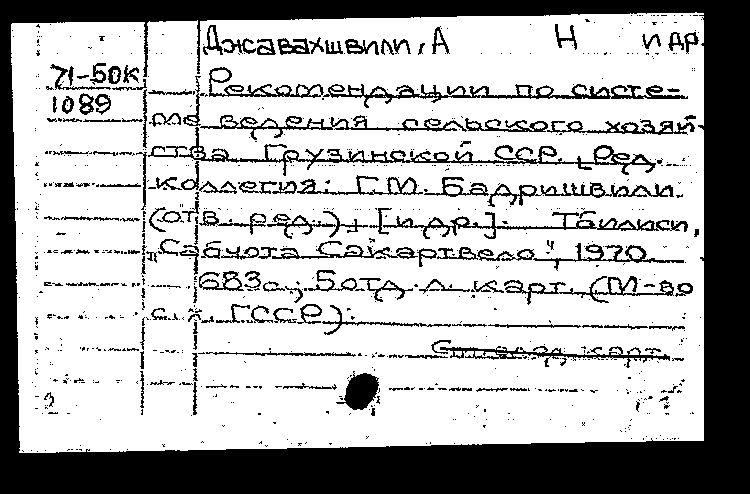 Джавахшвили, А Н и др.
71-50к Рекомендации по систе-
1089
ме ведения сельского хозяй-
ства Грузинской ССР. [Ред.
коллегия: Г.М. Бадришвили
(отв. ред.) [и др.]. Тбилиси,
"Сабчота Сакартвело", 1970.
683с., 5 отд. л. карт. (М-во
с. х. ГССР).
карт.